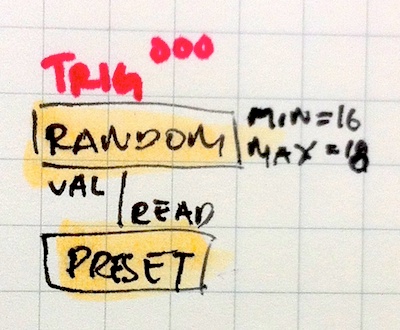 TRIG 000
RANDOM MIN=16
MAX=18
VAL
READ
PRESET